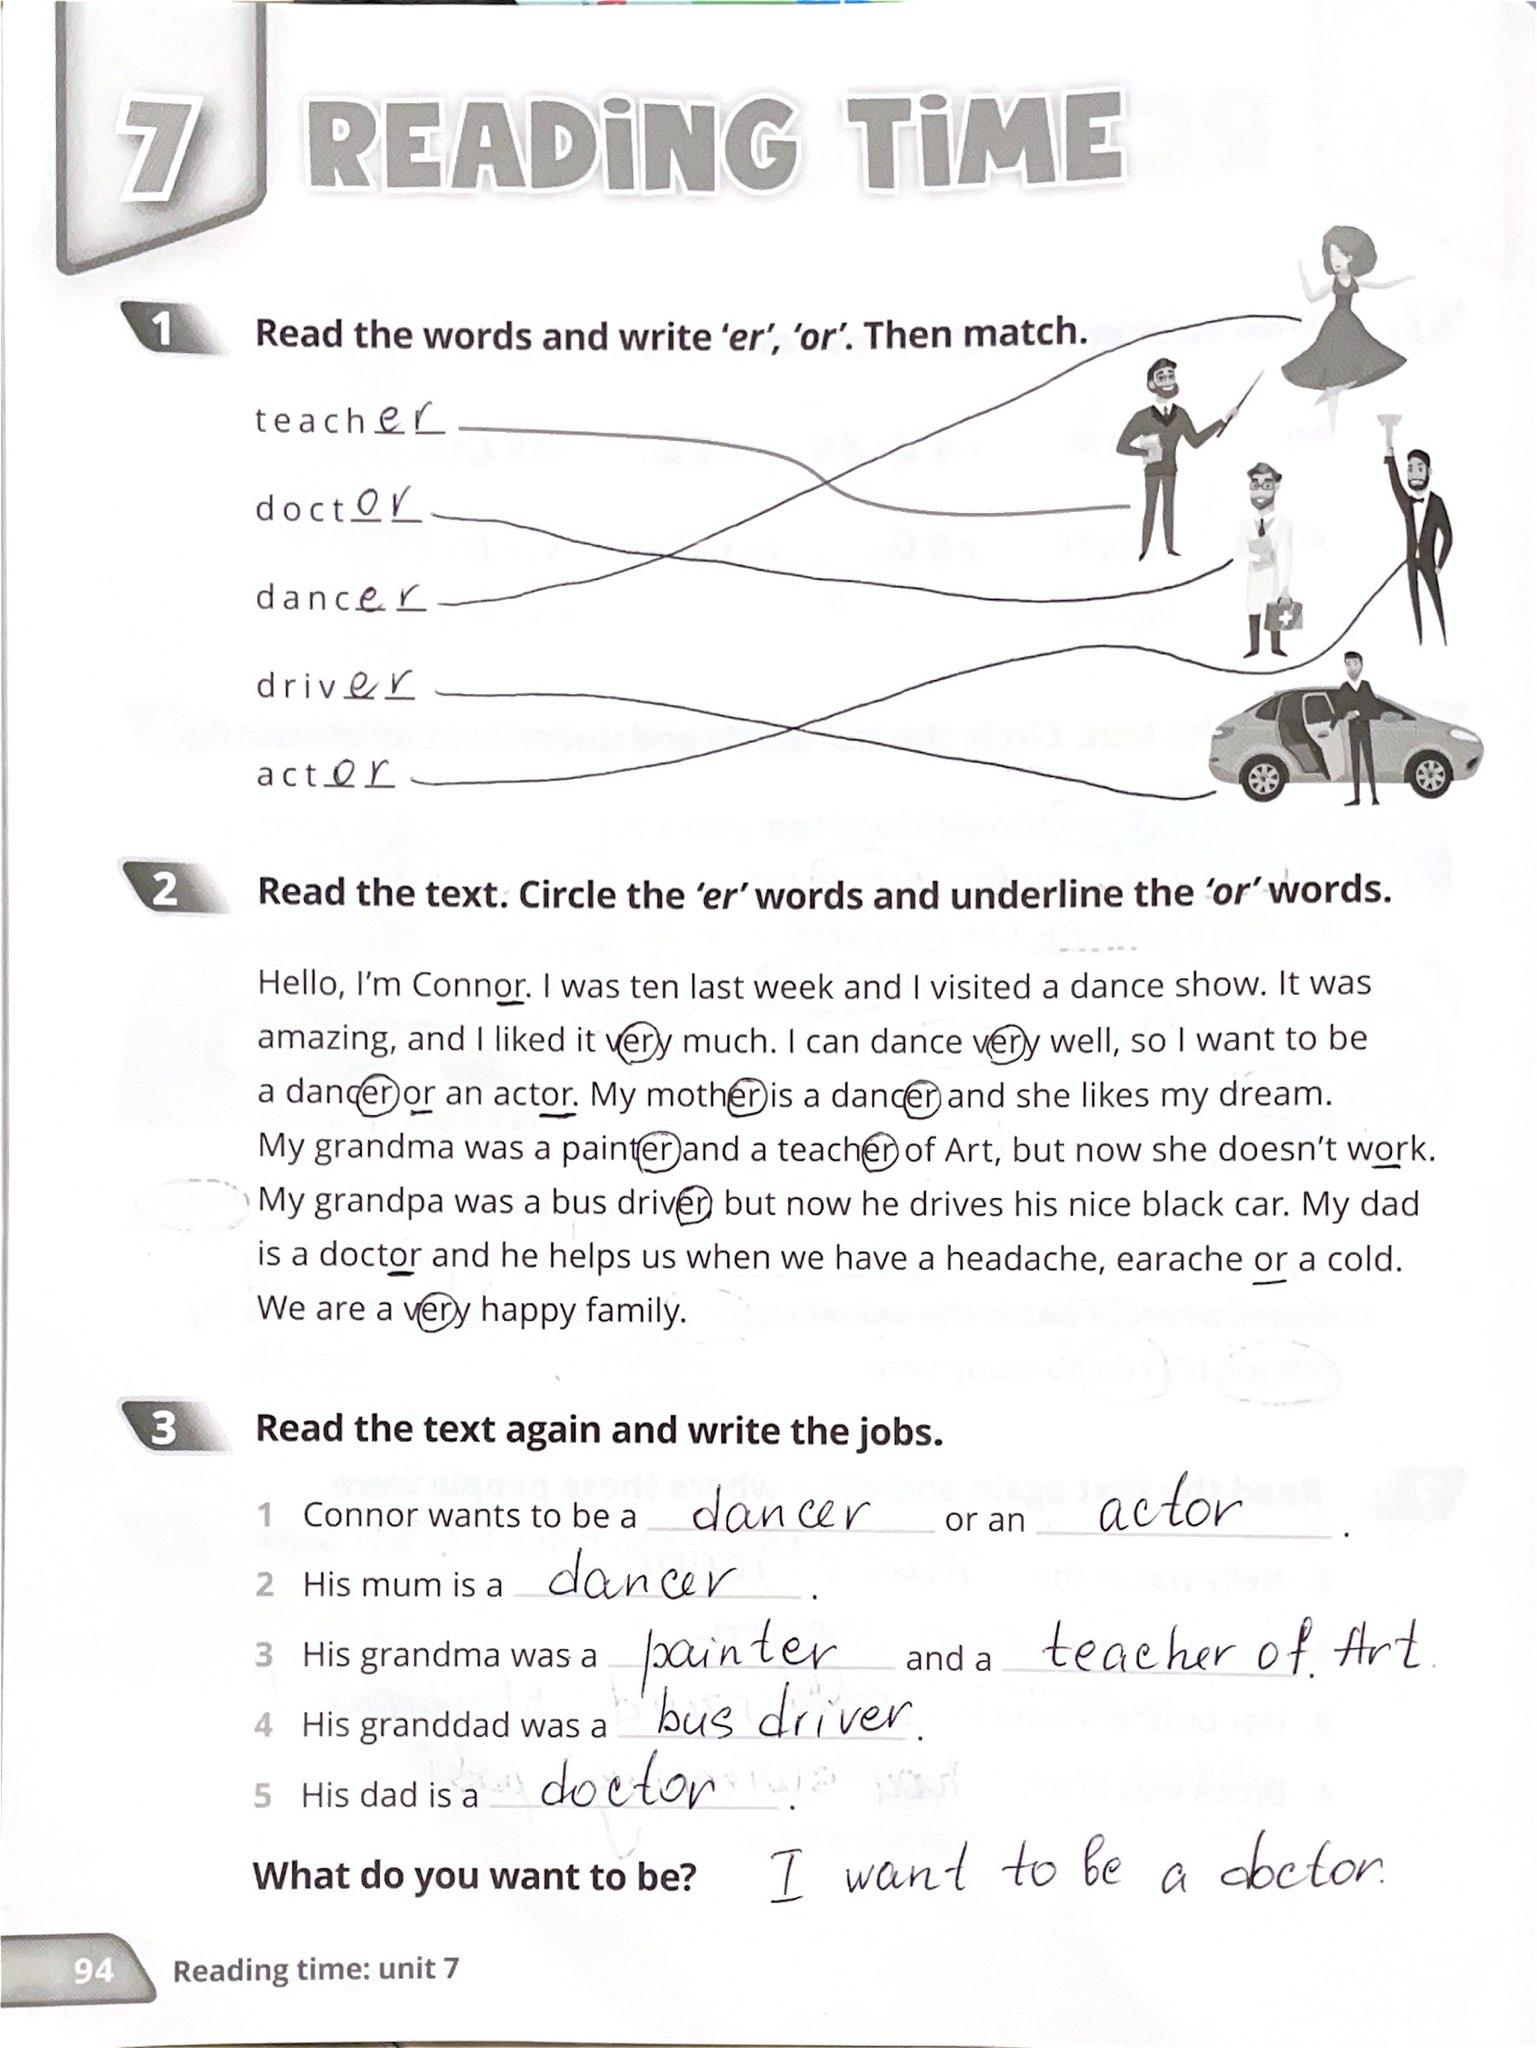 7 READING TIME
1 Read the words and write 'er', 'or'. Then match.
teacher
doctor
dancer
driver
actor
2 Read the text. Circle the 'er' words and underline the 'or' words.
Hello, I'm Connor. I was ten last week and I visited a dance show. It was
amazing, and I liked it very much. I can dance very well, so I want to be
a dancer or an actor. My mother is a dancer and she likes my dream.
My grandma was a painter and a teacher of Art, but now she doesn't work.
My grandpa was a bus driver, but now he drives his nice black car. My dad
is a doctor and he helps us when we have a headache, earache or a cold.
We are a very happy family.
3 Read the text again and write the jobs.
1 Connor wants to be a dancer or an actor.
2 His mum is a dancer.
3 His grandma was a painter and a teacher of Art.
4 His granddad was a bus driver.
5 His dad is a doctor.
What do you want to be? I want to be a doctor.
94 Reading time: unit 7